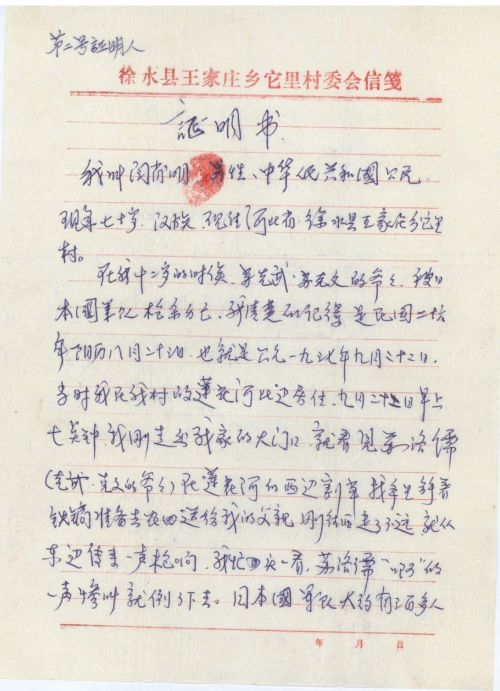 第二号証明人
徐水县王家庄乡它里村委会信笺
証明书
我叫闫 明 男性、中华人民共和國公民
现年七十岁 汉族 现住河北省·徐水县王家庄乡它里
村。
在我十二岁的时候，苏克武·苏克文的爷爷，被日
本國军队枪杀 亡，我清楚的记得是民国二十六
年 历八月二十 日 也就是公元一九三七年九月二十二日，
当时我在我村的蓮花河北边居住，九月二十 日早上
七点钟我刚走出我家的大门口 就看見苏洛儒
(克武·克文的爷爷)在蓮花河的西边割草 我手里 着
铁镐准备去农田送给我的父親，刚往西走了不远 就从
东边传来一声枪响，我忙回头一看，苏洛儒“ ”的
一声惨叫就倒了下去。日本國军队大约有二百多人
年 月 日